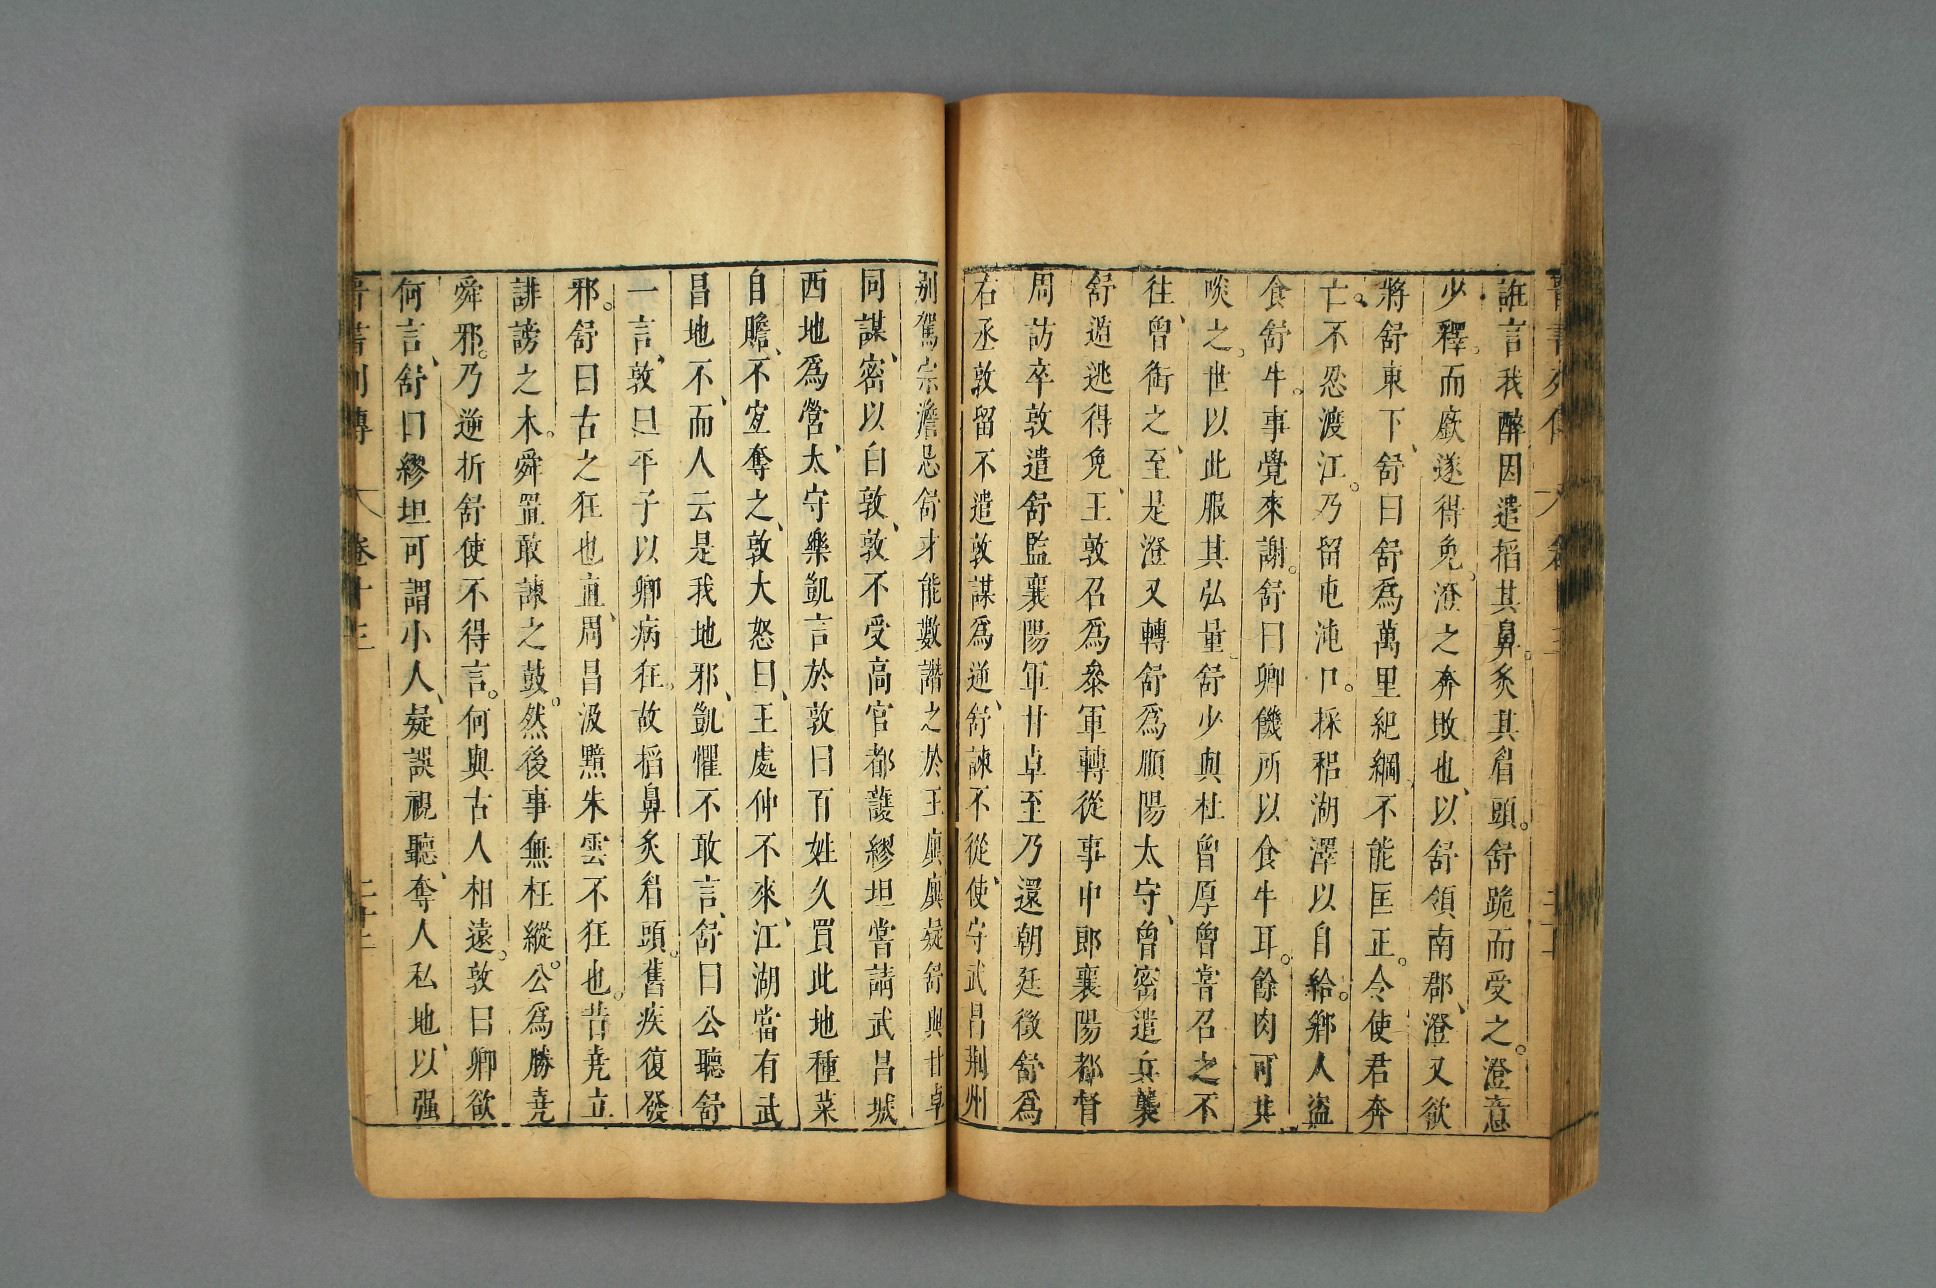 誑言我醉因遣搯其鼻。炙其眉頭。舒跪而受之。澄意
少釋。而厥遂得免。澄之奔敗也、以舒領南郡、澄又欲
將舒東下、舒曰舒爲萬里紀綱、不能匡正。令使君奔
亡。不忍渡江。乃留屯沌口。採稆湖澤以自給。鄉人盜
食舒牛。事覺來謝。舒曰卿饑所以食牛耳。餘肉可共
啖之。世以此服其弘量。舒少與杜曾厚曾嘗召之不
往、曾銜之、至是澄又轉舒爲順陽太守、曾密遣兵襲
舒遁逃得免、王敦召爲參軍轉從事中郎襄陽都督
周訪卒敦遣舒監襄陽軍甘卓至乃還朝廷徵舒爲
右丞敦留不遣敦謀爲逆、舒諫不從、使守武昌荆州
別駕宗澹忌舒才能數譖之於王廙、廙疑舒與甘卓
同謀、密以白敦、敦不受高官都護繆坦嘗請武昌城
西地爲營、太守樂凱言於敦曰百姓久買此地種菜
自贍、不宜奪之、敦大怒曰、王處仲不來、江湖當有武
昌地不、而人云是我地邪、凱懼不敢言、舒曰公聽舒
一言、敦曰平子以卿病狂。故搯鼻炙眉頭。舊疾復發
邪。舒曰古之狂也直、周昌汲黯朱雲不狂也。昔堯立
誹謗之木。舜置敢諫之鼓。然後事無枉縱。公爲勝堯
舜邪。乃逆折舒使不得言。何與古人相遠。敦曰卿欲
何言、舒曰繆坦可謂小人、疑誤視聽、奪人私地、以强
晉書列傳 卷十三 二十二